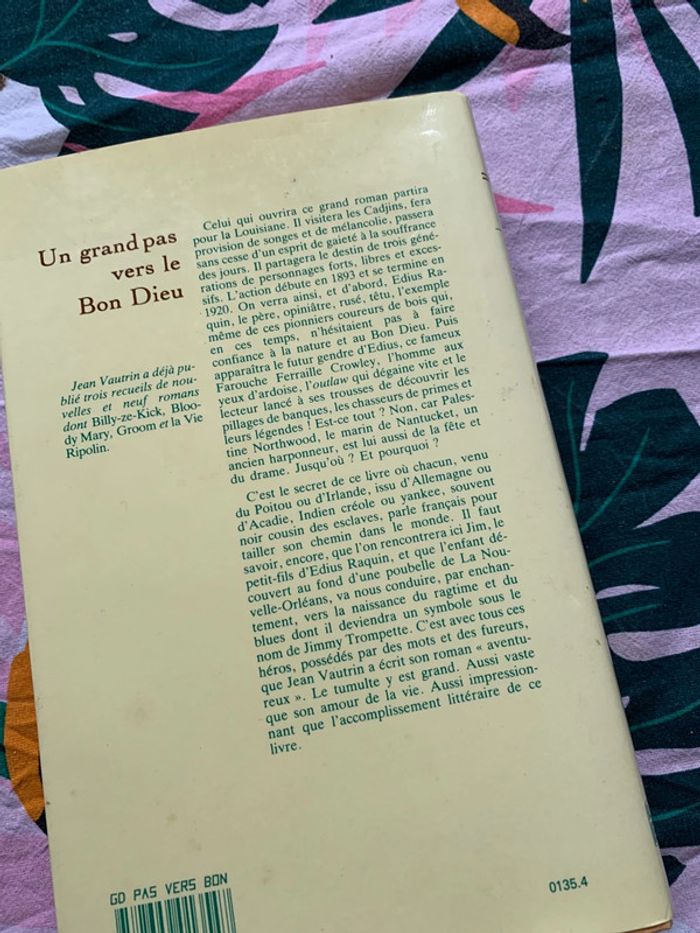 Un grand pas
vers le
Bon Dieu
Jean Vautrin a déjà pu-
blié trois recueils de nou-
velles et neuf romans
dont Billy-ze-Kick, Bloo-
dy Mary, Groom et la Vie
Ripolin.
Celui qui ouvrira ce grand roman partira
pour la Louisiane. Il visitera les Cadjins, fera
provision de songes et de mélancolie, passera
sans cesse d'un esprit de gaieté à la souffrance
des jours. Il partagera le destin de trois géné-
rations de personnages forts, libres et exces-
sifs. L'action débute en 1893 et se termine en
1920. On verra ainsi, et d'abord, Edius Ra-
quin, le père, opiniâtre, rusé, têtu, l'exemple
même de ces pionniers coureurs de bois qui,
en ces temps, n'hésitaient pas à faire
confiance à la nature et au Bon Dieu. Puis
apparaîtra le futur gendre d'Edius, ce fameux
Farouche Ferraille Crowley, l'homme aux
yeux d'ardoise, l'outlaw qui dégaine vite et le
lecteur lancé à ses trousses de découvrir les
pillages de banques, les chasseurs de primes et
leurs légendes ! Est-ce tout ? Non, car Pales-
tine Northwood, le marin de Nantucket, un
ancien harponneur, est lui aussi de la fête et
du drame. Jusqu'où ? Et pourquoi ?
C'est le secret de ce livre où chacun, venu
du Poitou ou d'Irlande, issu d'Allemagne ou
d'Acadie, Indien créole ou yankee, souvent
noir cousin des esclaves, parle français pour
tailler son chemin dans le monde. Il faut
savoir, encore, que l'on rencontrera ici Jim, le
petit-fils d'Edius Raquin, et que l'enfant dé-
couvert au fond d'une poubelle de La Nou-
velle-Orléans, va nous conduire, par enchan-
tement, vers la naissance du ragtime et du
blues dont il deviendra un symbole sous le
nom de Jimmy Trompette. C'est avec tous ces
héros, possédés par des mots et des fureurs,
que Jean Vautrin a écrit son roman « aventu-
reux ». Le tumulte y est grand. Aussi vaste
que son amour de la vie. Aussi impression-
nant que l'accomplissement littéraire de ce
livre.
GD PAS VERS BON
0135.4